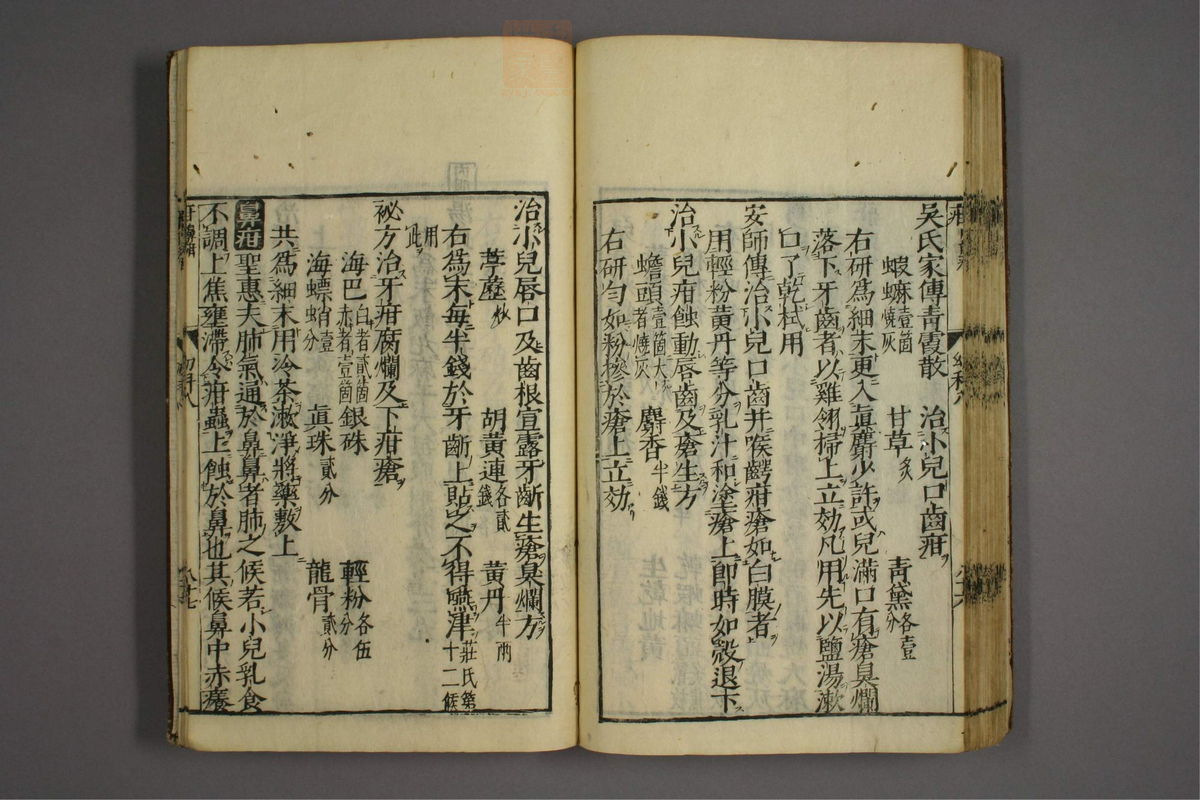 吳氏家傳青霞散　治小兒口齒疳
蝦蟆壹箇燒灰　甘草炙　青黛各壹分
右研爲細末更入眞麝少許或兒滿口有瘡臭爛
落下牙齒者以雞翎掃上立効凡用先以鹽湯漱
口了乾拭用
安師傳治小兒口齒并喉齶疳瘡如白膜者
用輕粉黃丹等分乳汁和塗瘡上即時如殼退下
治小兒疳蝕動唇齒及瘡生方
蟾頭壹箇大者燒灰　麝香半錢
右研勻如粉摻於瘡上立効
治小兒唇口及齒根宣露牙齗生瘡臭爛方
葶藶炒　胡黃連各貳錢　黃丹半兩
右爲末每半錢於牙齗上貼之不得嚥津莊氏第十二候
用此
祕方治牙疳腐爛及下疳瘡
海巴白者貳箇赤者壹箇　銀硃　輕粉各伍分
海螵蛸壹分　眞珠貳分　龍骨貳分
共爲細末用冷茶漱淨將藥敷上
鼻疳聖惠夫肺氣通於鼻鼻者肺之候若小兒乳食
不調上焦壅滯令疳蟲上蝕於鼻也其候鼻中赤癢
幼科八
八十七